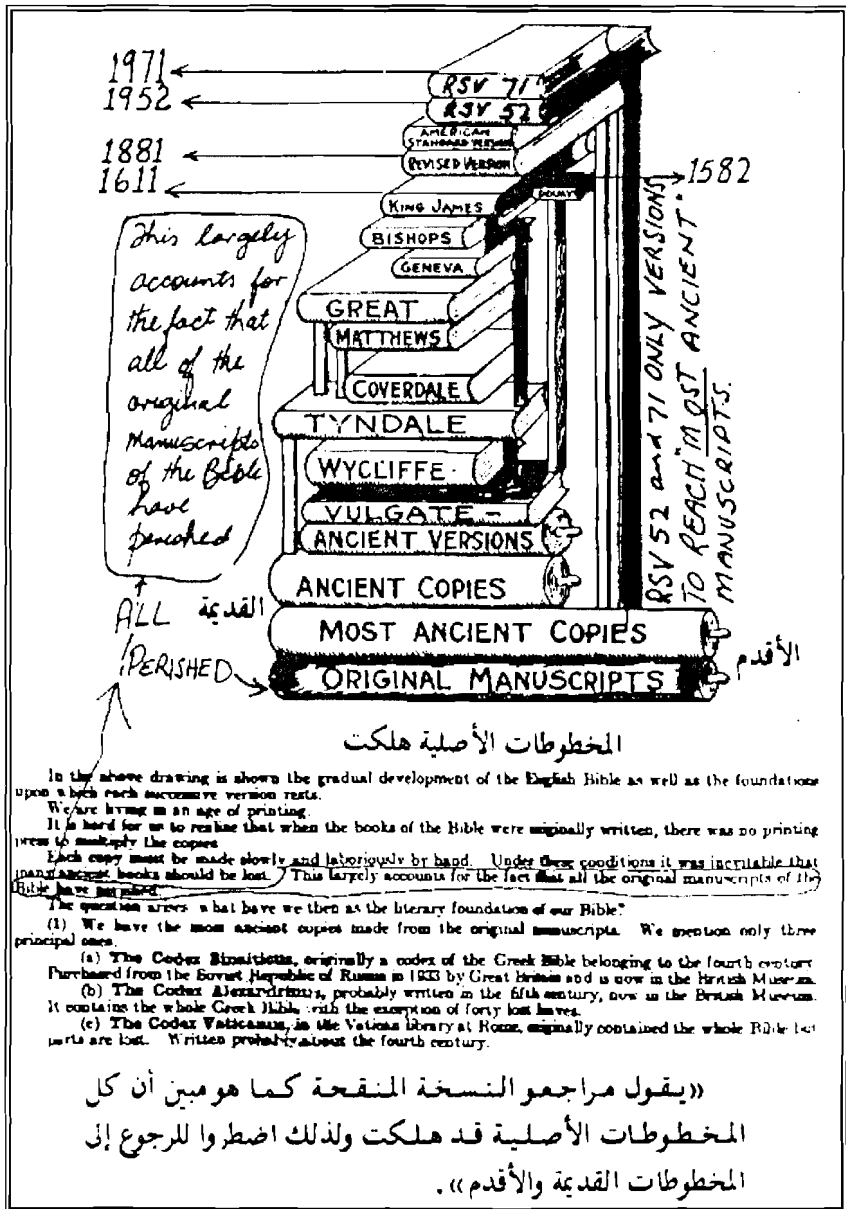 1971
RSV 71
1952
RSV 52
AMERICAN
STANDARD VERSION
1881
REVISED VERSION
1611
1582
DOUAY
KING JAMES
BISHOPS
GENEVA
GREAT
MATTHEWS
COVERDALE
TYNDALE
WYCLIFFE
VULGATE
ANCIENT VERSIONS
ANCIENT COPIES
MOST ANCIENT COPIES
ORIGINAL MANUSCRIPTS
This largely
accounts for
the fact that
all of the
original
Manuscripts
of the Bible
have
perished
ALL
PERISHED
القديمة
الأقدم
RSV 52 and 71 ONLY VERSIONS
TO REACH "MOST ANCIENT"
MANUSCRIPTS.
المخطوطات الأصلية هلكت
In the above drawing is shown the gradual development of the English Bible as well as the foundations
upon which each successive version rests.
We are living in an age of printing.
It is hard for us to realise that when the books of the Bible were originally written, there was no printing
press to multiply the copies
Each copy must be made slowly and laboriously by hand. Under these conditions it was inevitable that
many ancient books should be lost. This largely accounts for the fact that all the original manuscripts of the
Bible have perished.
The question arises what have we then as the literary foundation of our Bible?
(1) We have the most ancient copies made from the original manuscripts. We mention only three
principal ones.
(a) The Codex Sinaiticus, originally a codex of the Greek Bible belonging to the fourth century
Purchased from the Soviet Republic of Russia in 1933 by Great Britain and is now in the British Museum.
(b) The Codex Alexandrinus, probably written in the fifth century, now in the British Museum.
It contains the whole Greek Bible with the exception of forty lost leaves.
(c) The Codex Vaticanus, in the Vatican library at Rome, originally contained the whole Bible but
parts are lost. Written probably about the fourth century.
«يقول مراجعو النسخة المنقحة كما هو مبين أن كل
المخطوطات الأصلية قد هلكت ولذلك اضطروا للرجوع إلى
المخطوطات القديمة والأقدم».